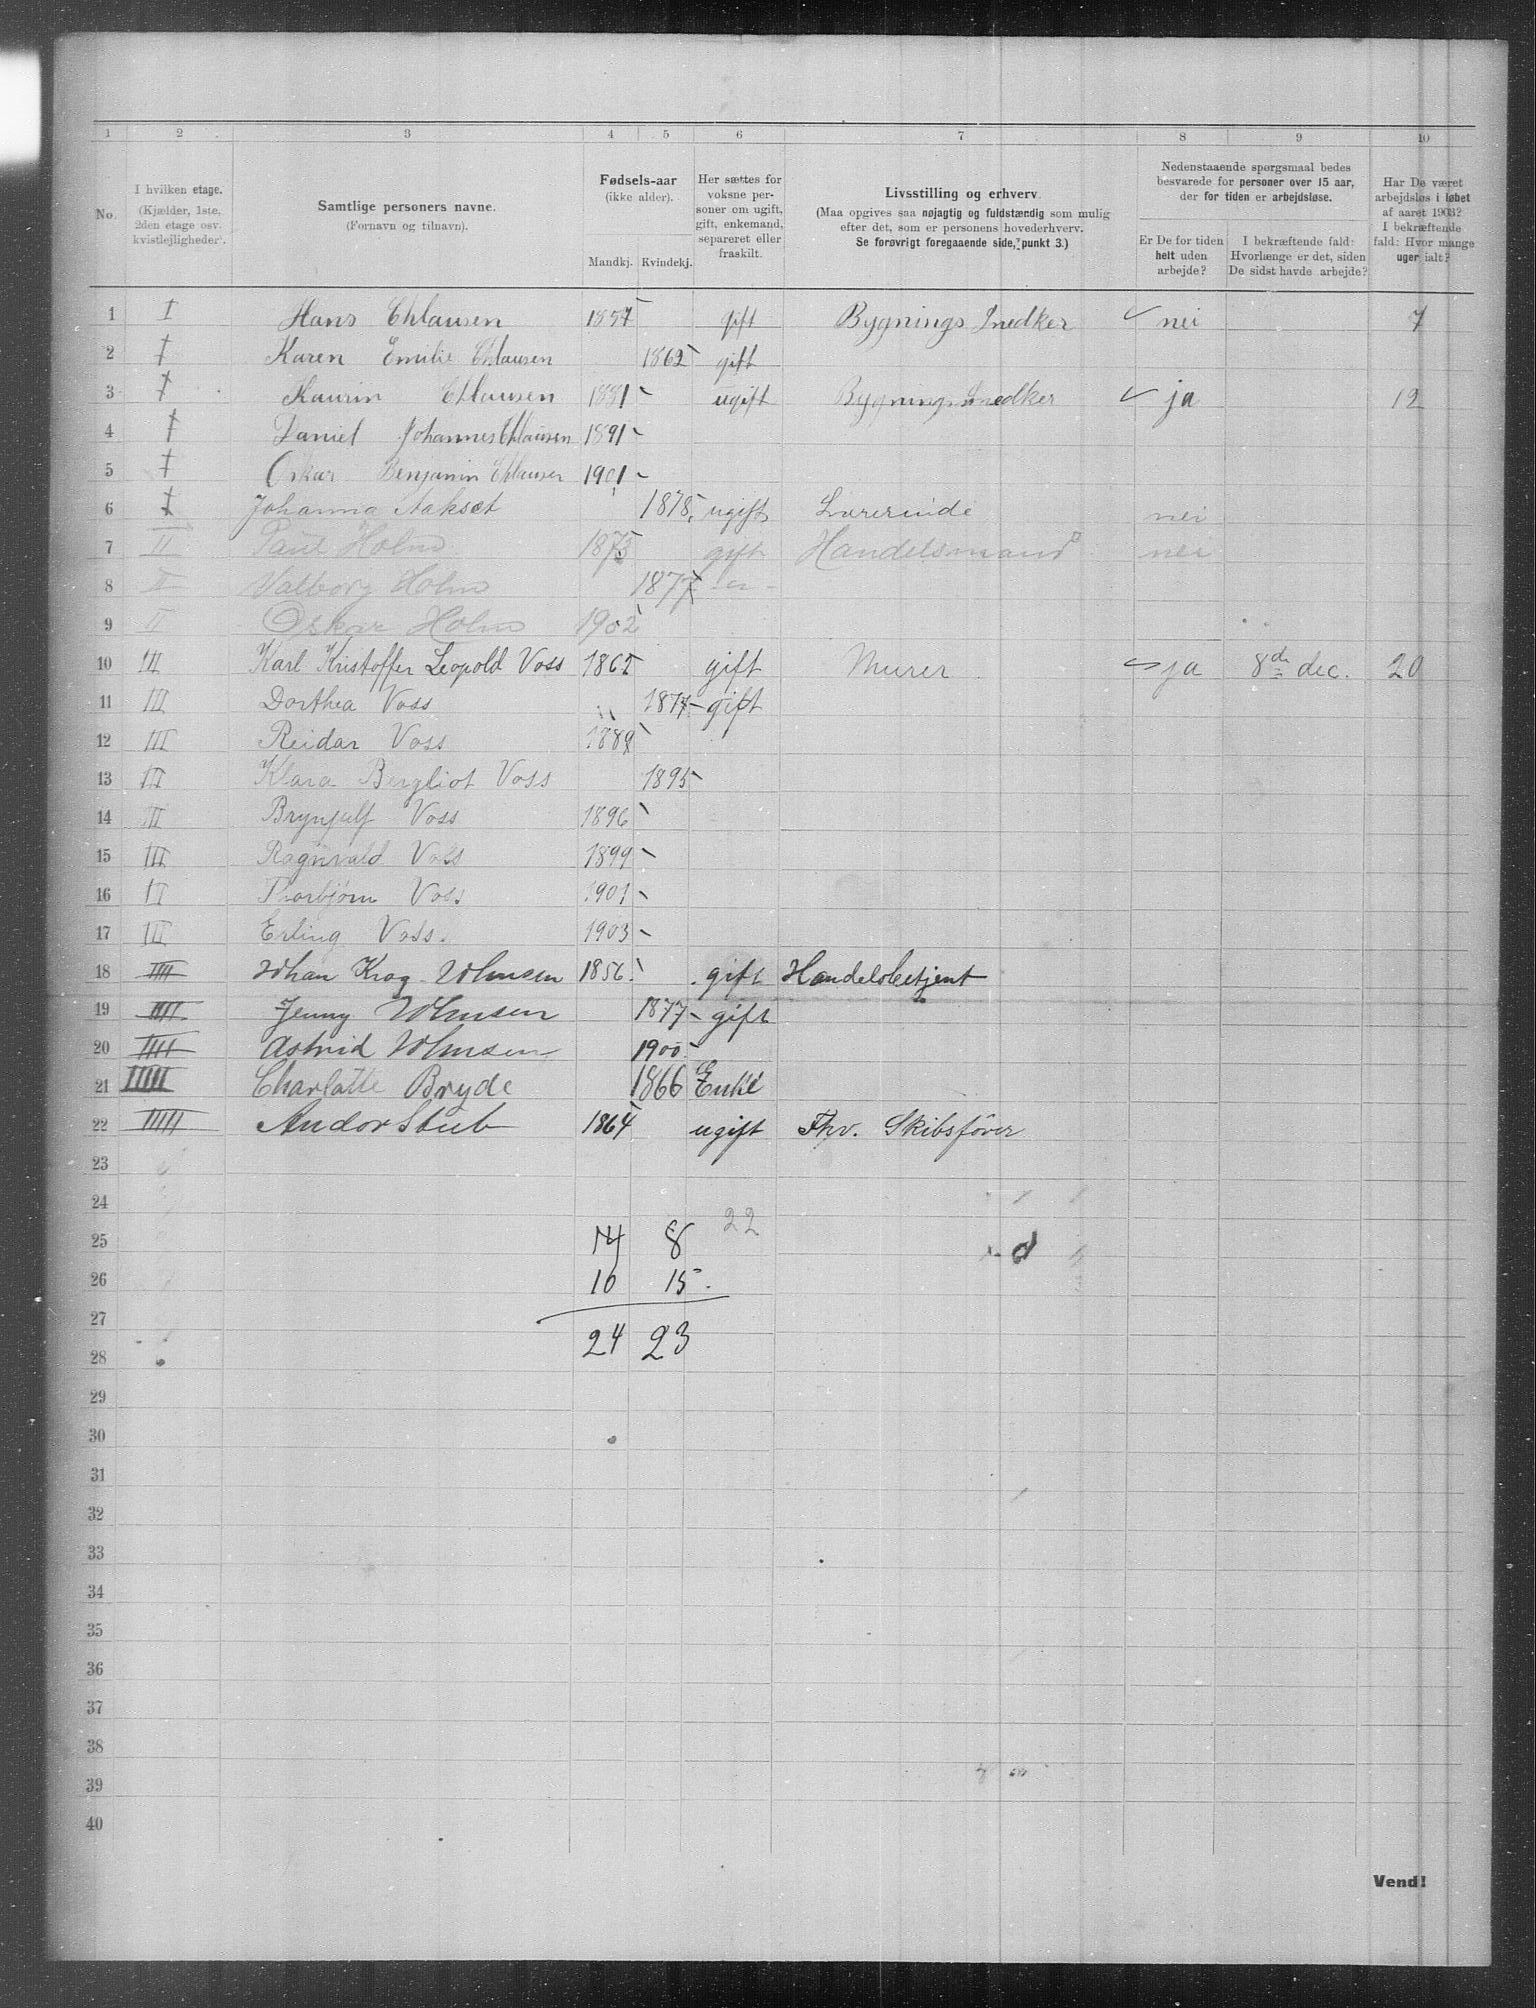 1 2 3 4 5 6 7 8 9 10
No.
I hvilken etage.
(Kjælder, 1ste,
2den etage osv.
kvistlejligheder).
Samtlige personers navne.
(Fornavn og tilnavn).
Fødsels-aar
(ikke alder).
Mandkj. Kvindekj.
Her sættes for
voksne per-
soner om ugift,
gift, enkemand,
separeret eller
fraskilt.
Livsstilling og erhverv.
(Maa opgives saa nøjagtig og fuldstændig som mulig
efter det, som er personens hovederhverv.
Se forøvrigt foregaaende side, punkt 3.)
Nedenstaaende spørgsmaal bedes
besvarede for personer over 15 aar,
der for tiden er arbejdsløse.
Er De for tiden
helt uden
arbejde?
I bekræftende fald:
Hvorlænge er det, siden
De sidst havde arbejde?
Har De været
arbejdsløs i løbet
af aaret 1903?
I bekræftende
fald: Hvor mange
uger ialt?
1 I Hans Chlausen 1857 gift Bygnings Snedker nei 7
2 I Karen Emilie Chlausen 1862 gift
3 I Laurin Chlausen 1881 ugift Bygningssnedker ja 12
4 I Daniel Johannes Chlausen 1891
5 I Oskar Benjamin Chlausen 1901
6 I Johanna Aakset 1878 ugift Lærerinde nei
7 II Paul Holm 1873 gift Handelsmand nei
8 II Valborg Holm 1877
9 II Oskar Holm 1902
10 III Karl Kristoffer Leopold Voss 1862 gift Murer ja 8de dec. 20
11 III Dorthea Voss 1877 gift
12 III Reidar Voss 1889
13 III Klara Bergliot Voss 1895
14 III Brynjulf Voss 1896
15 III Ragnvald Voss 1899
16 III Thorbjørn Voss 1901
17 III Erling Voss. 1903
18 IIII Johan Krog Johnsen 1856 gift Handelsbetjent
19 IIII Jenny Johnsen 1877 gift
20 IIII Astrid Johnsen 1900
21 IIIII Charlotte Bryde 1866 Enke
22 IIIII Andor Stub 1864 ugift Fhv. Skibsfører
23
24
22
25 14 8
26 10 15
27
28 24 23
29
30
31
32
33
34
35
36
37
38
39
40
Vend!